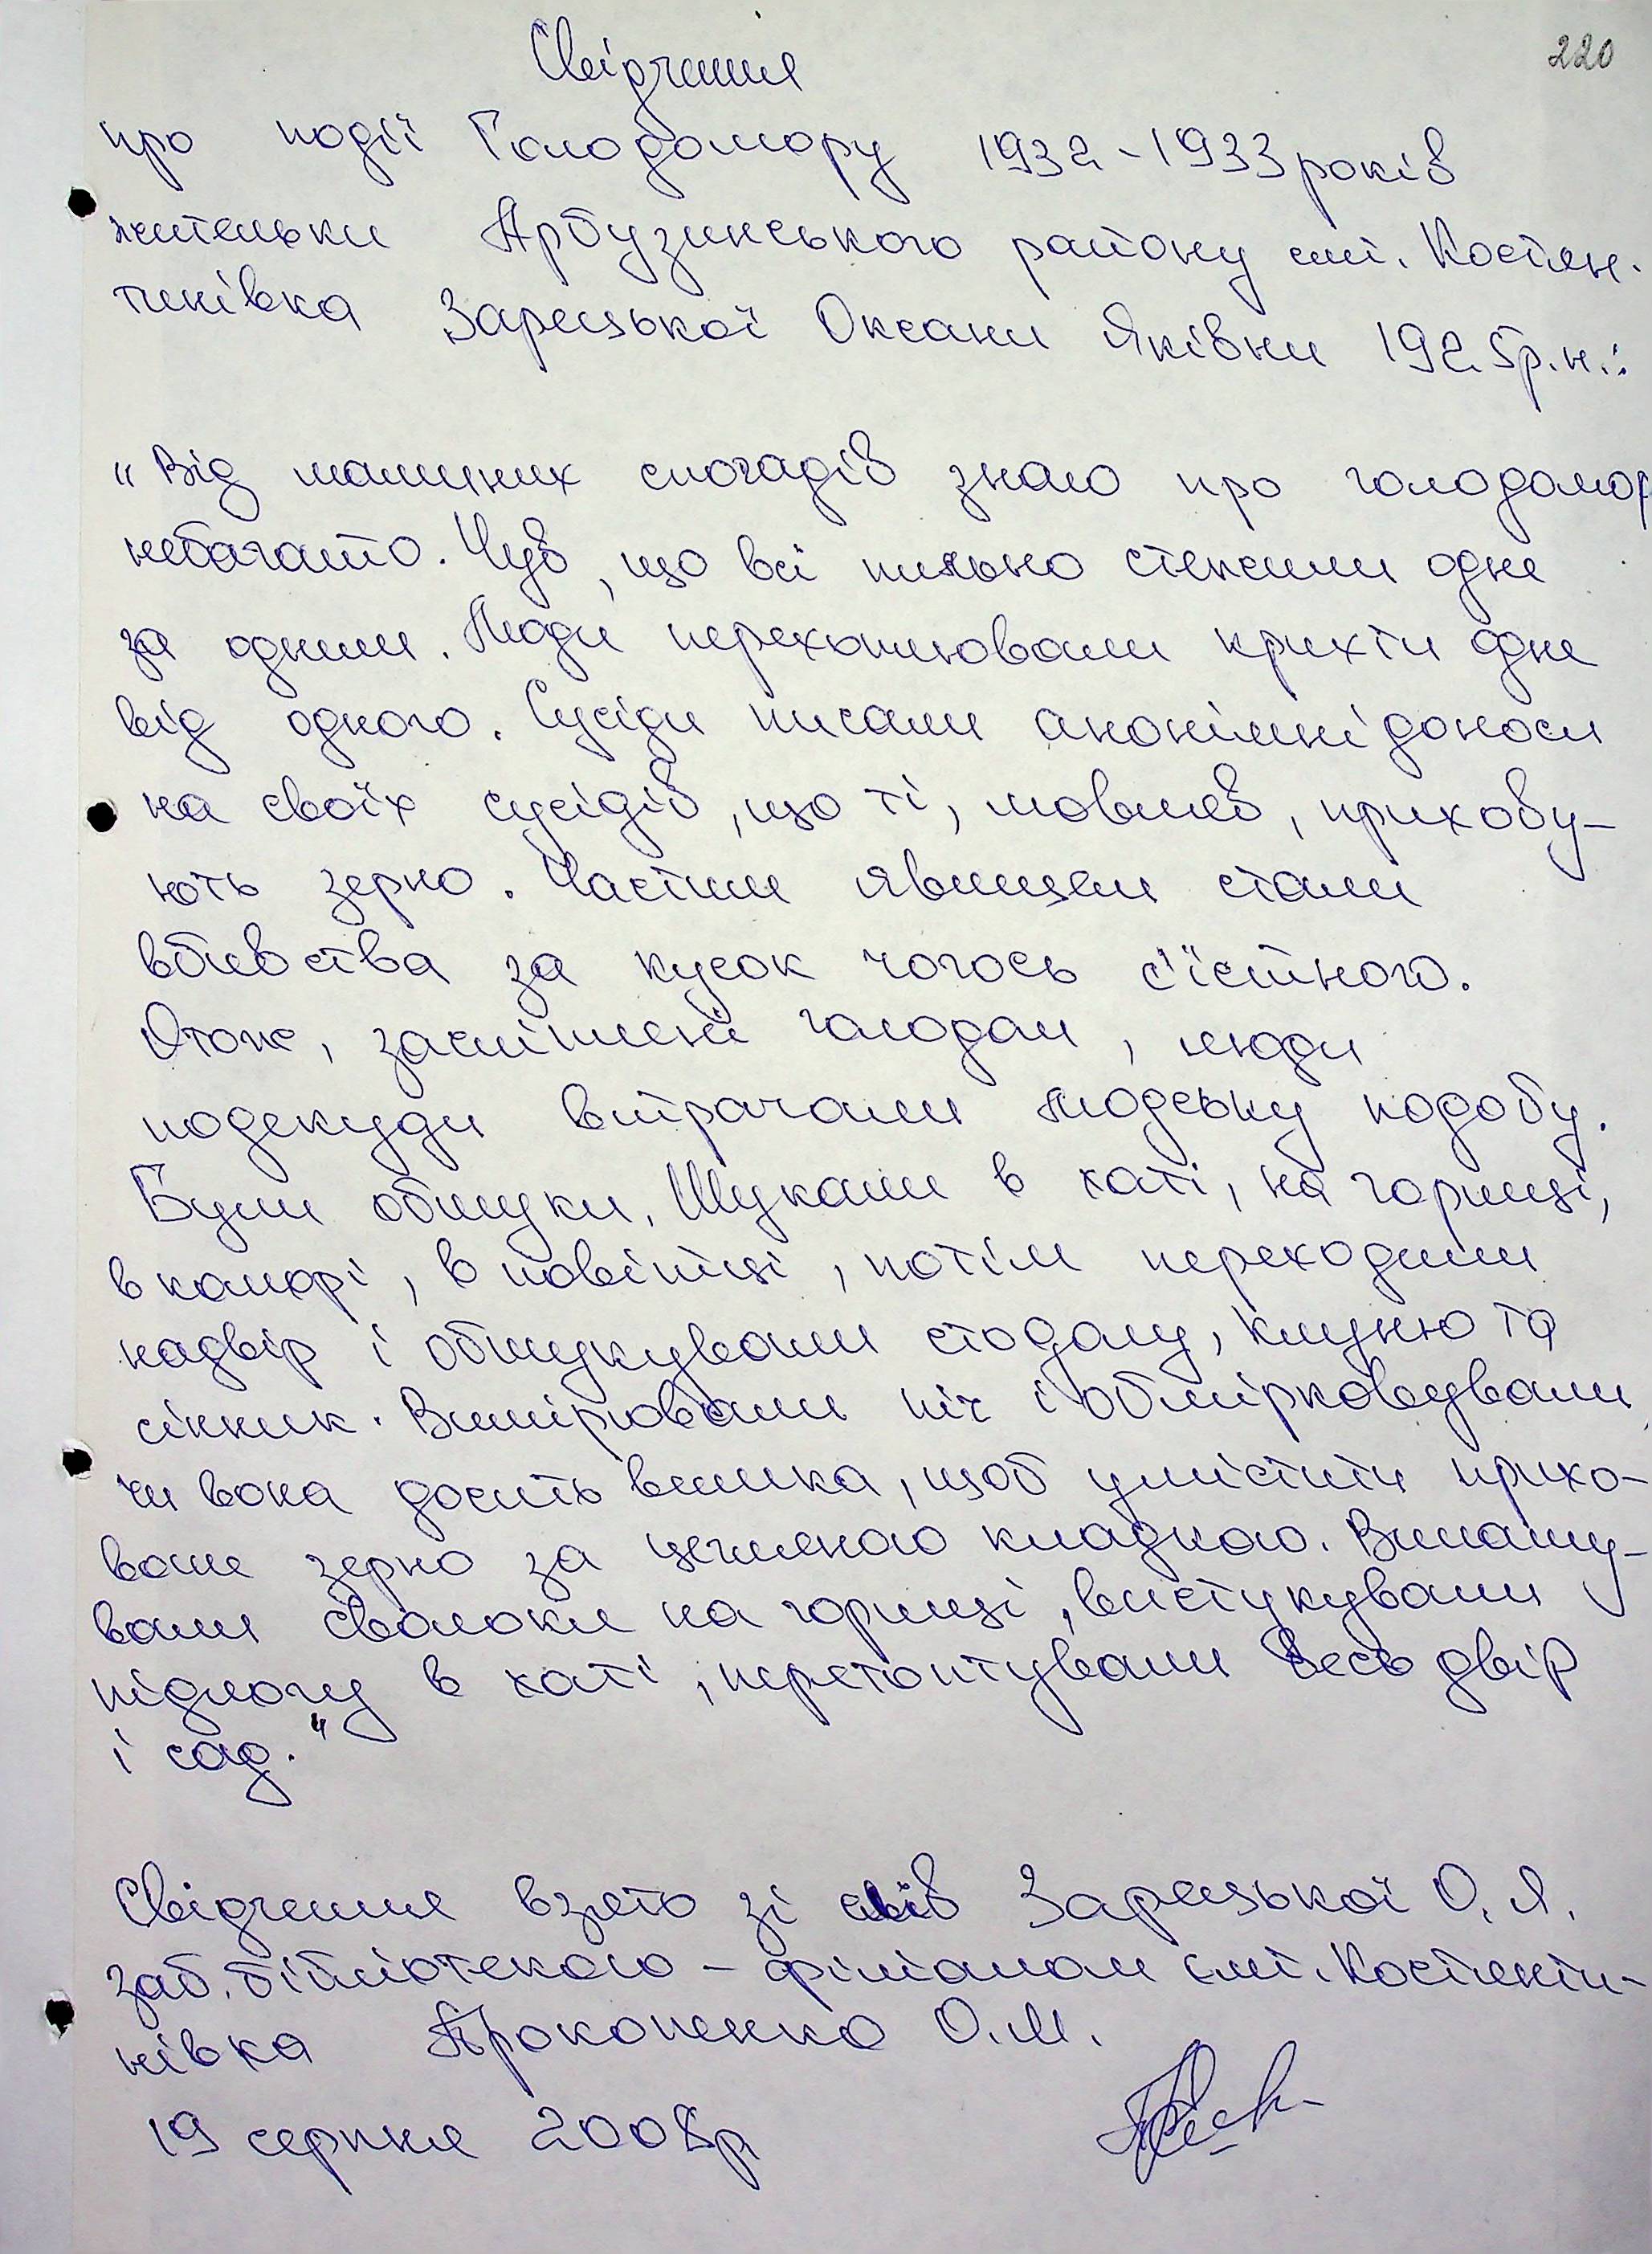 220
Свідчення
про події Голодомору 1932-1933 років
жительки Арбузинського району смт. Костян-
тинівка Зарецької Оксани Яківни 1925р.н.:
"Від маминих спогадів знаю про голодомор
небагато. Чув, що всі пильно стежили одне
за одним. Люди перехоплювали крихти одне
від одного. Сусіди писали анонімні доноси
на своїх сусідів, що ті, мовляв, прихову-
ють зерно. Частим явищем стали
вбивства за кусок чогось с'їстного.
Отож, засліплені голодом, люди
подекуди втрачали людську подобу.
Були обшуки. Шукали в хаті, на горищі,
в коморі, в повітці, потім переходили
надвір і обшукували стодолу, клуню та
сінник. Вимірювали піч і обмірковували,
чи вона досить велика, щоб умістити прихо-
ване зерно за цегляною кладкою. Виламу-
вали сволоки на горищі, вистукували
підлогу в хаті, перетоптували весь двір
і сад."
Свідчення взято зі слів Зарецької О.Я.
заб. бібліотекою - філіалом смт. Костянти-
нівка Прокопенко О.М.
19 серпня 2008р